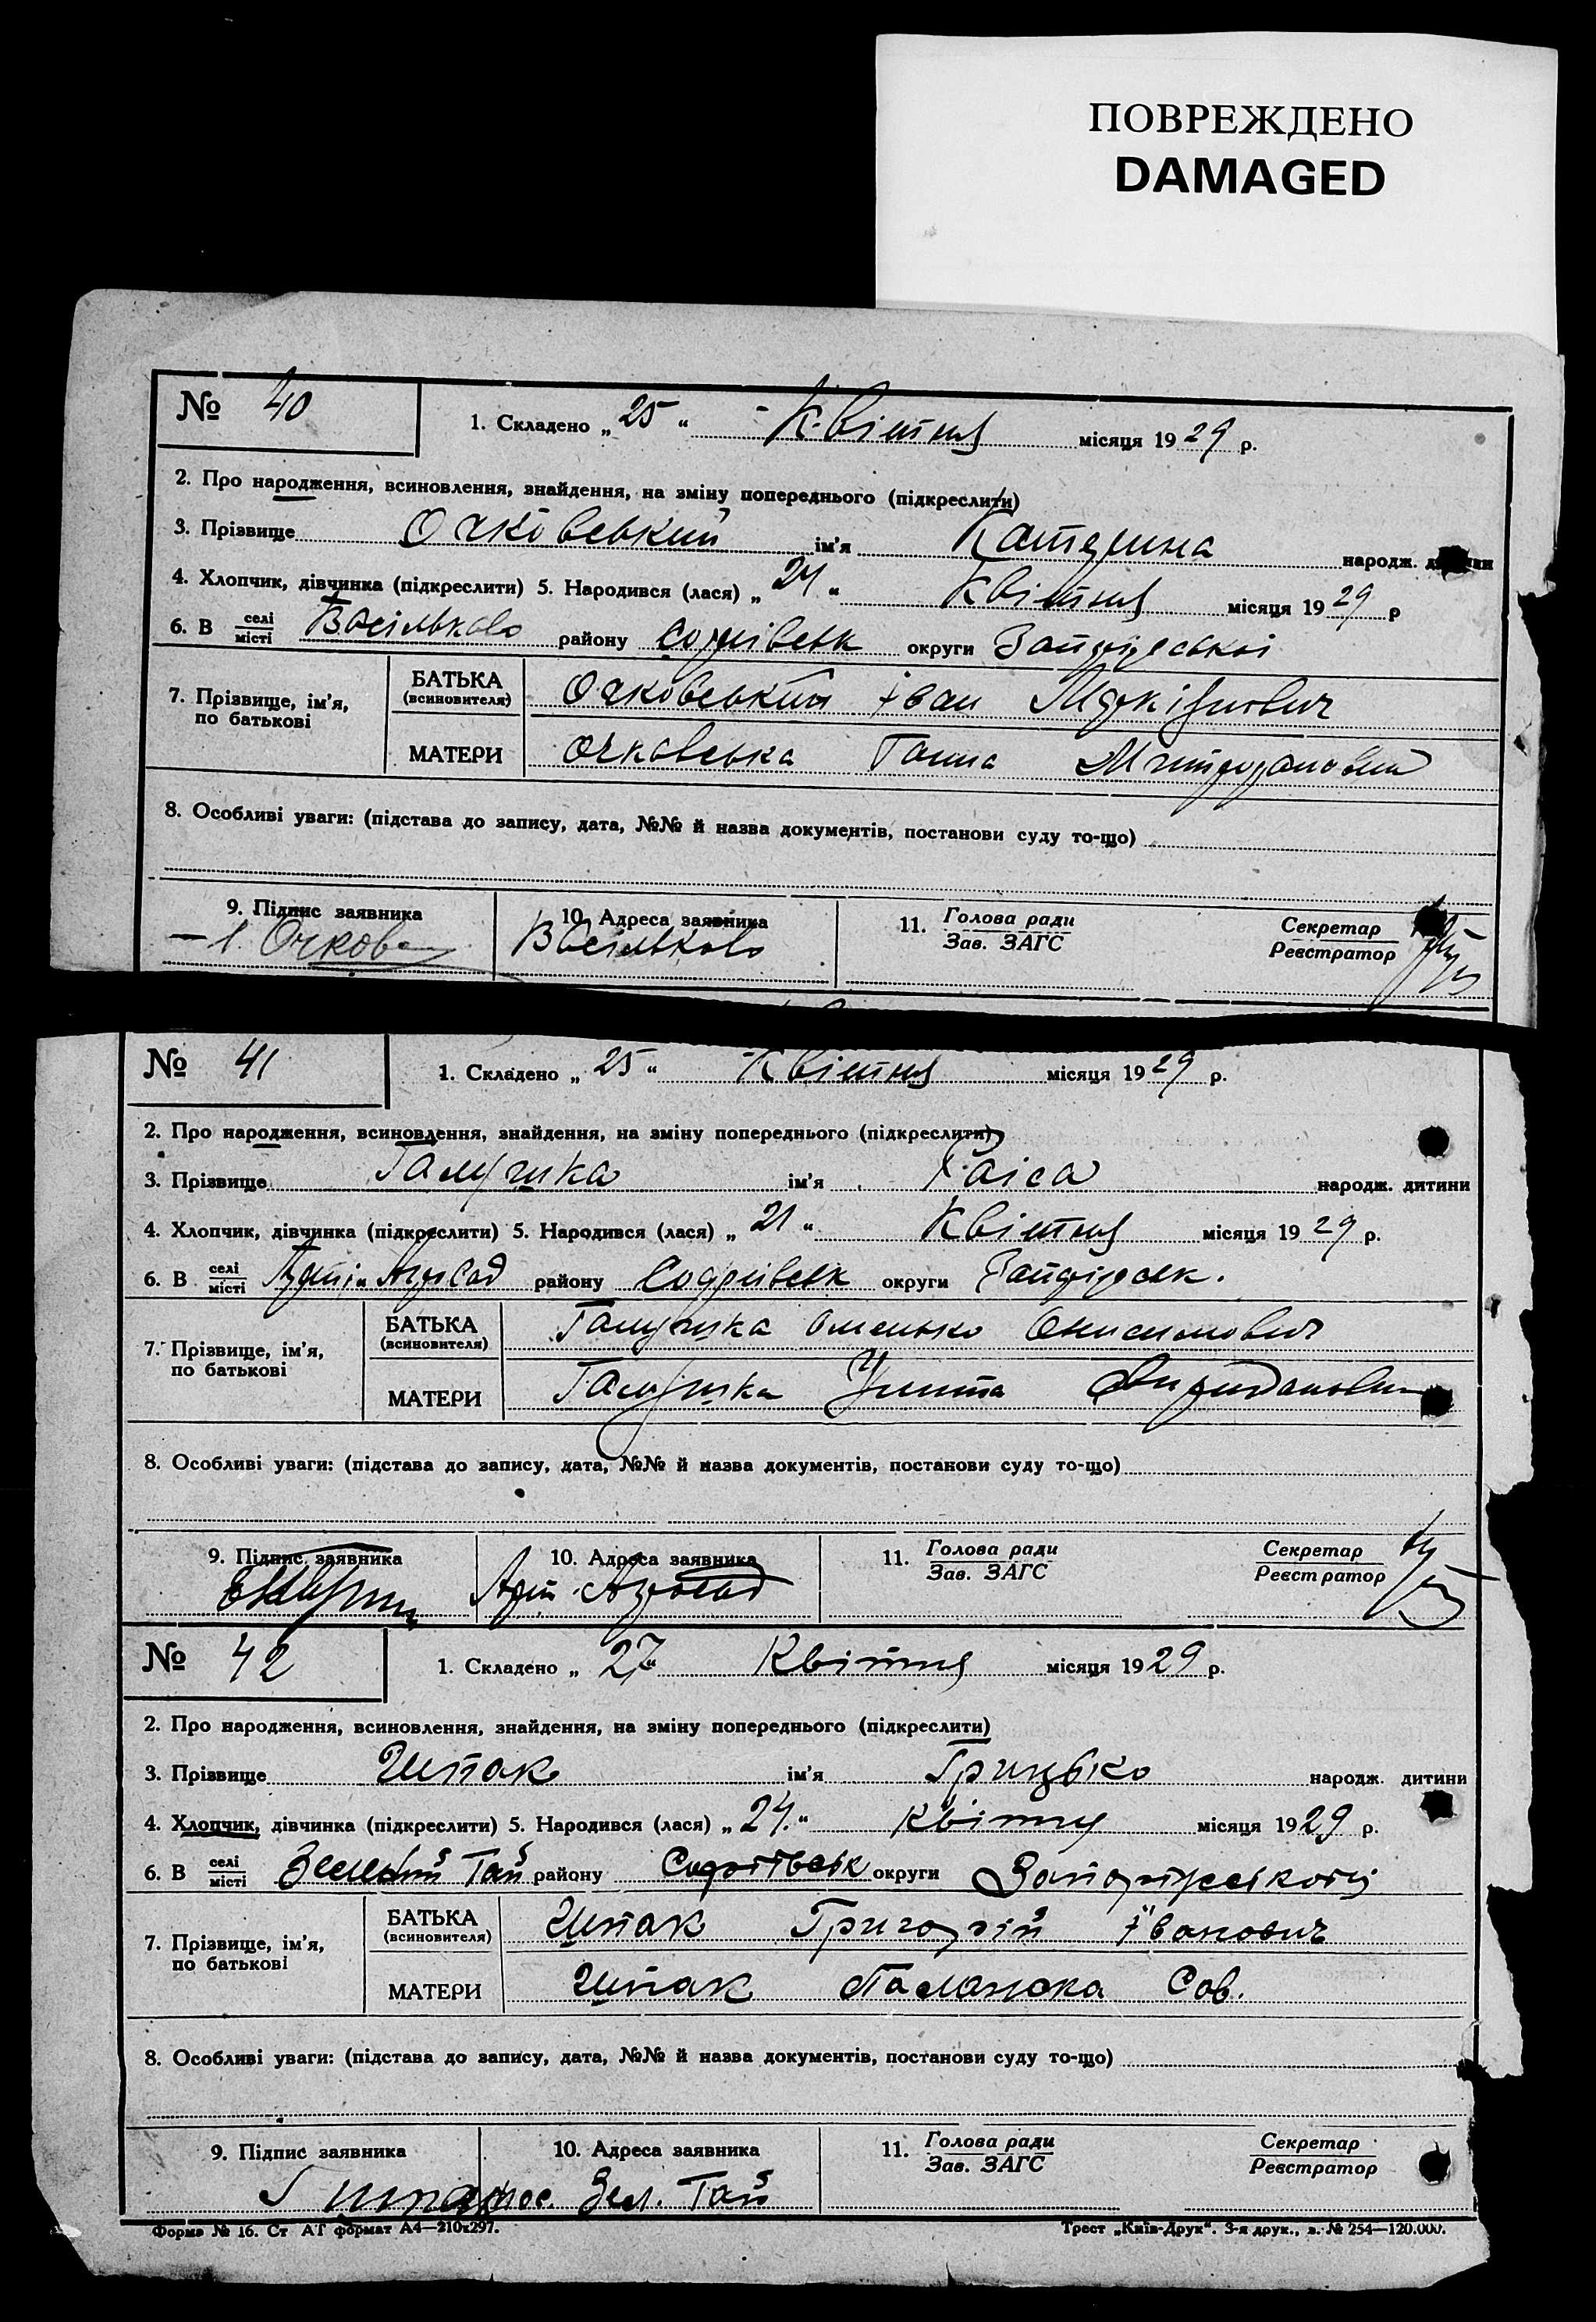 ПОВРЕЖДЕНО
DAMAGED
№ 40
1. Складено „ 25 “ Квітня місяця 19 29 р.
2. Про народження, всиновлення, знайдення, на зміну попереднього (підкреслити)
3. Прізвище Очковський ім'я Катерина народж. дитини
4. Хлопчик, дівчинка (підкреслити) 5. Народився (лася) „ 24 “ Квітня місяця 19 29 р
6. В селі місті Васільково району Софіівськ округи Запоріжської
7. Прізвище, ім'я, по батькові
БАТЬКА (всиновителя) Очковський Іван
МАТЕРИ Очковська Ганна
8. Особливі уваги: (підстава до запису, дата, №№ й назва документів, постанови суду то-що)
9. Підпис заявника 10. Адреса заявника 11. Голова ради Зав. ЗАГС Секретар Реєстратор
Васільково
№ 41
1. Складено „ 25 “ Квітня місяця 19 29 р.
2. Про народження, всиновлення, знайдення, на зміну попереднього (підкреслити)
3. Прізвище ім'я Раіса народж. дитини
4. Хлопчик, дівчинка (підкреслити) 5. Народився (лася) „ 21 “ Квітня місяця 19 29 р.
6. В селі місті району Софіівськ округи Запоріжськ.
7. Прізвище, ім'я, по батькові
БАТЬКА (всиновителя) Омелько Онисимович
МАТЕРИ
8. Особливі уваги: (підстава до запису, дата, №№ й назва документів, постанови суду то-що)
9. Підпис заявника 10. Адреса заявника 11. Голова ради Зав. ЗАГС Секретар Реєстратор
№ 42
1. Складено „ 27 “ Квітня місяця 19 29 р.
2. Про народження, всиновлення, знайдення, на зміну попереднього (підкреслити)
3. Прізвище Шпак ім'я Грицько народж. дитини
4. Хлопчик, дівчинка (підкреслити) 5. Народився (лася) „ 24. “ квітня місяця 19 29 р.
6. В селі місті Зелений Гай району Софіівськ округи
7. Прізвище, ім'я, по батькові
БАТЬКА (всиновителя) Шпак Григорій Іванович
МАТЕРИ Шпак Паланока Сав.
8. Особливі уваги: (підстава до запису, дата, №№ й назва документів, постанови суду то-що)
9. Підпис заявника 10. Адреса заявника 11. Голова ради Зав. ЗАГС Секретар Реєстратор
Шпак пос. Зел. Гай
Форма № 16. Ст АТ формат А4—210х297. Трест „Київ-Друк“. 3-я друк., з. № 254—120.000.